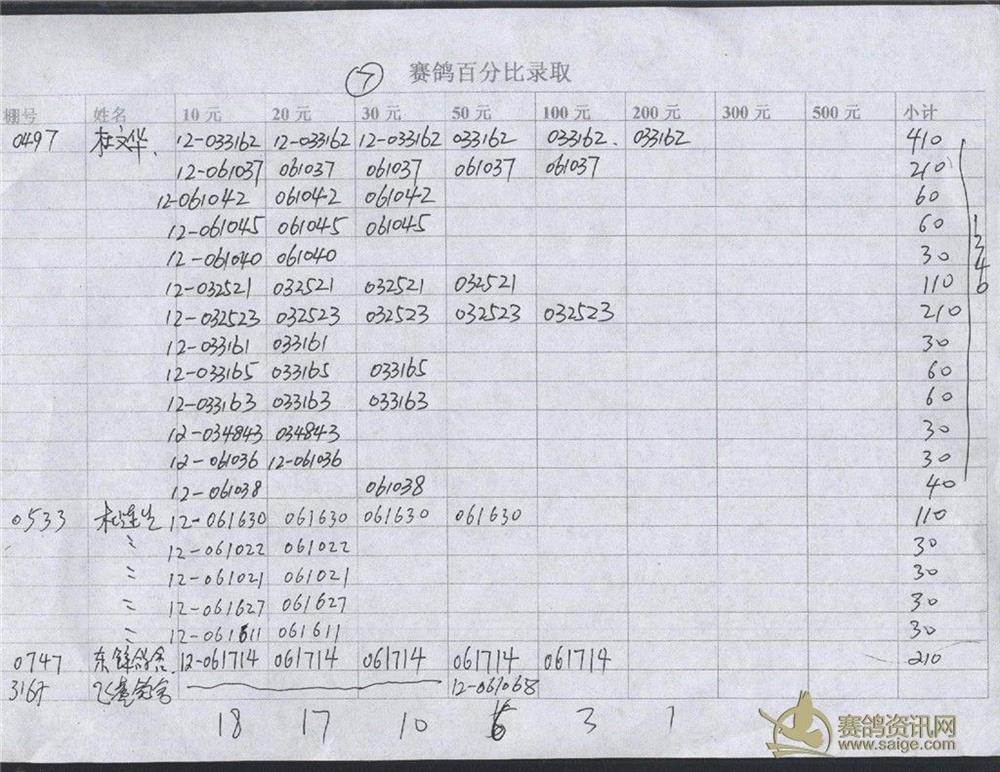 ⑦ 赛鸽百分比录取
棚号 姓名 10元 20元 30元 50元 100元 200元 300元 500元 小计
0497 杜文华. 12-033162 12-033162 12-033162 033162 033162. 033162 410
12-061037 061037 061037 061037 061037 210
12-061042 061042 061042 60
12-061045 061045 061045 60
12-061040 061040 30
12-032521 032521 032521 032521 110
12-032523 032523 032523 032523 032523 210
12-033161 033161 30
12-033165 033165 033165 60
12-033163 033163 033163 60
12-034843 034843 30
12-061036 12-061036 30
12-061038 061038 40
1340
0533 12-061630 061630 061630 061630 110
〃 12-061022 061022 30
〃 12-061021 061021 30
〃 12-061627 061627 30
〃 12-061611 061611 30
0747 东锋鸽舍. 12-061714 061714 061714 061714 061714 210
3167 12-061068
18 17 10 3 1
赛鸽资讯网
www.saige.com